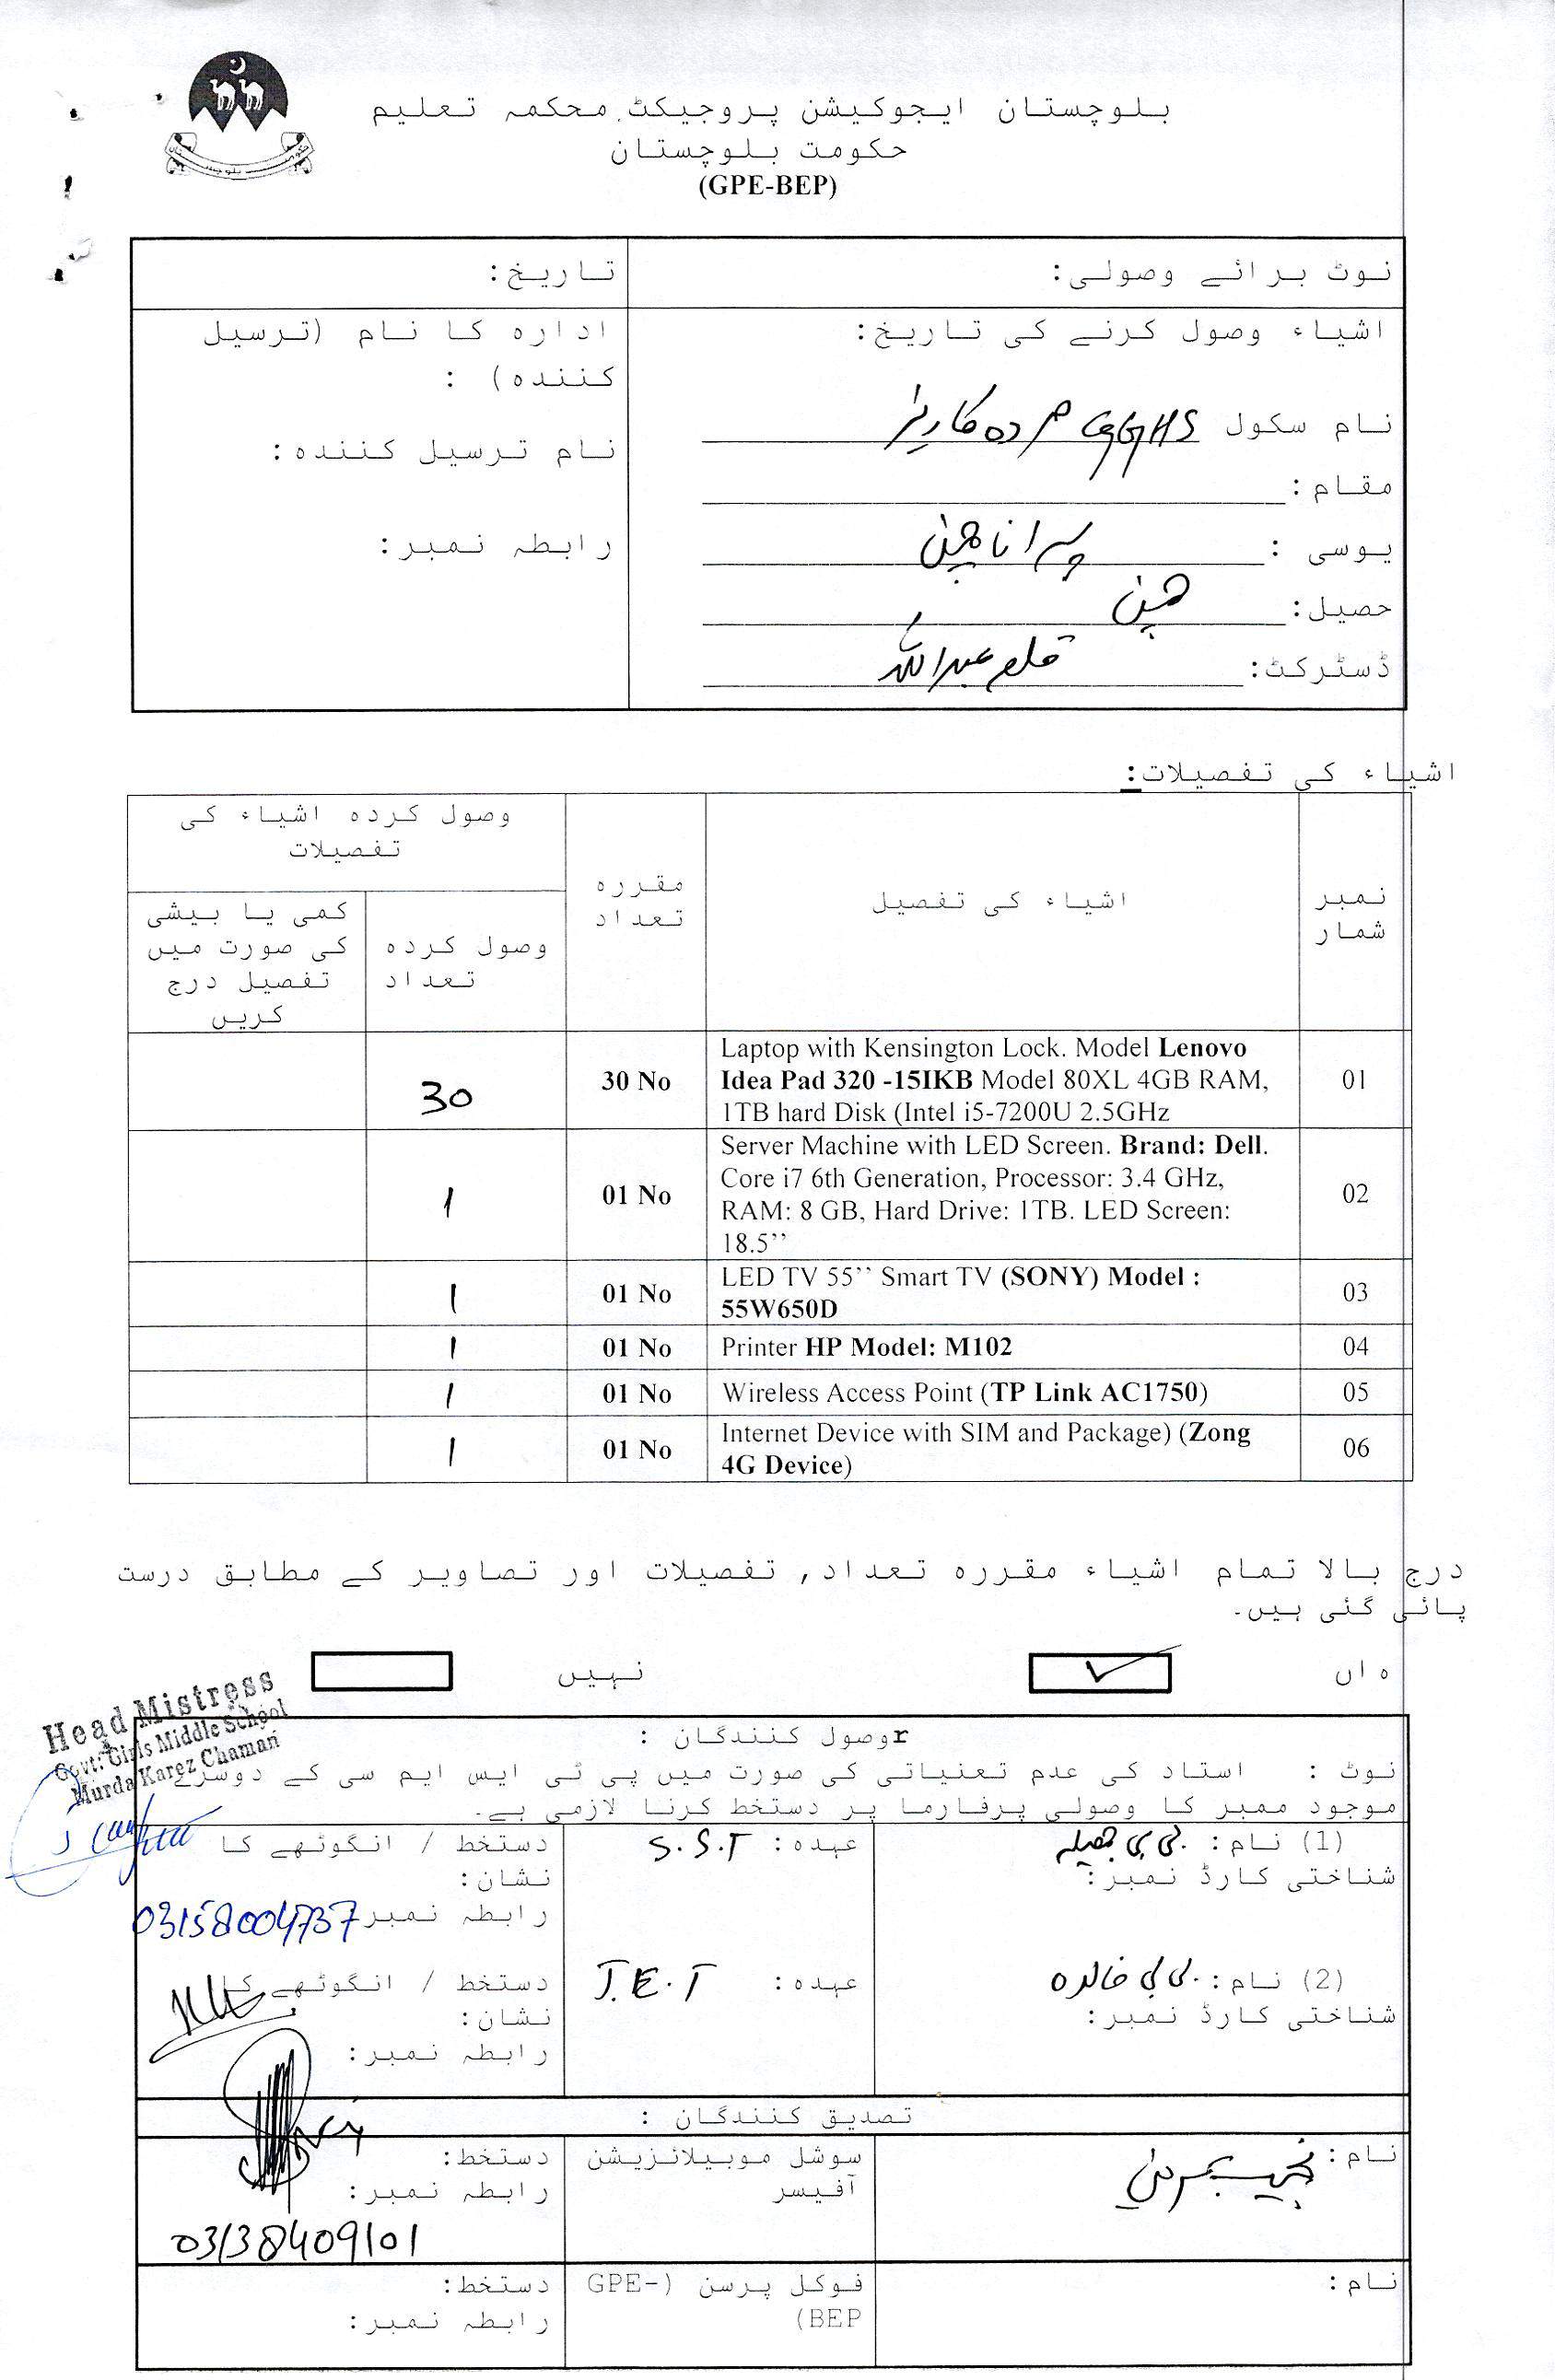 بلوچستان ایجوکیشن پروجیکٹ محکمہ تعلیم
حکومت بلوچستان
(GPE-BEP)
نوٹ برائے وصولی:
تاریخ:
اشیاء وصول کرنے کی تاریخ:
نام سکول GGHS مردہ کاریز
مقام:
یوسی : پرانا چمن
حصیل: چمن
ڈسٹرکٹ: قلعہ عبداللہ
ادارہ کا نام (ترسیل
کنندہ) :
نام ترسیل کنندہ:
رابطہ نمبر:
اشیاء کی تفصیلات:
نمبر شمار
اشیاء کی تفصیل
مقررہ تعداد
وصول کردہ اشیاء کی تفصیلات
وصول کردہ تعداد
کمی یا بیشی کی صورت میں تفصیل درج کریں
01 Laptop with Kensington Lock. Model Lenovo
Idea Pad 320 -15IKB Model 80XL 4GB RAM,
1TB hard Disk (Intel i5-7200U 2.5GHz
30 No 30
02 Server Machine with LED Screen. Brand: Dell.
Core i7 6th Generation, Processor: 3.4 GHz,
RAM: 8 GB, Hard Drive: 1TB. LED Screen:
18.5’’
01 No 1
03 LED TV 55’’ Smart TV (SONY) Model :
55W650D
01 No 1
04 Printer HP Model: M102 01 No 1
05 Wireless Access Point (TP Link AC1750) 01 No 1
06 Internet Device with SIM and Package) (Zong
4G Device)
01 No 1
درج بالا تمام اشیاء مقررہ تعداد, تفصیلات اور تصاویر کے مطابق درست
پائی گئی ہیں۔
ہاں ✓
نہیں
Head Mistress
Govt: Girls Middle School
Murda Karez Chaman
rوصول کنندگان :
نوٹ : استاد کی عدم تعنیاتی کی صورت میں پی ٹی ایس ایم سی کے دوسرے
موجود ممبر کا وصولی پرفارما پر دستخط کرنا لازمی ہے۔
(1) نام: بی بی جمیلہ
شناختی کارڈ نمبر:
عہدہ: S.S.T
دستخط / انگوٹھے کا
نشان:
رابطہ نمبر 03158004737
(2) نام: بی بی خالدہ
شناختی کارڈ نمبر:
عہدہ: J.E.T
دستخط / انگوٹھے کا
نشان:
رابطہ نمبر:
تصدیق کنندگان :
نام:
سوشل موبیلائزیشن
آفیسر
دستخط:
رابطہ نمبر:
03138409101
نام:
فوکل پرسن (GPE-
BEP)
دستخط:
رابطہ نمبر: